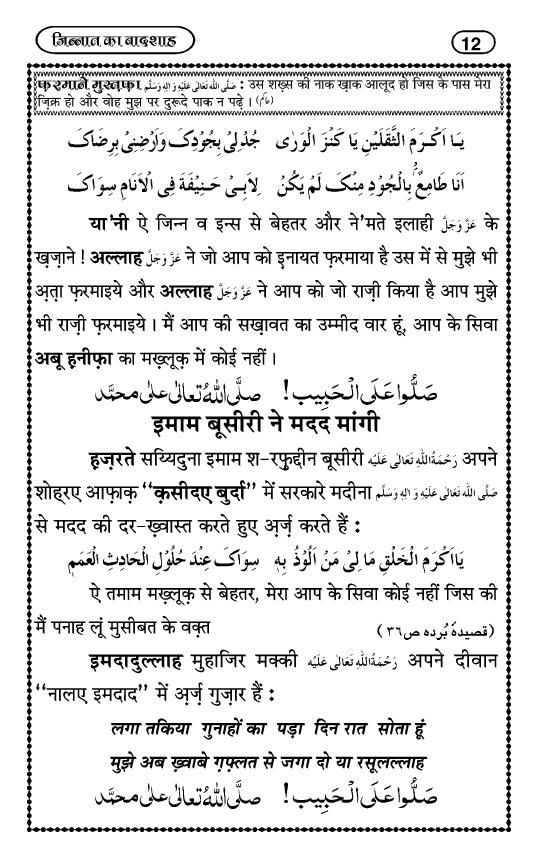 जिन्नात का बादशाह
12
फ़रमाने मुस्तफ़ा صَلَّى اللهُ تَعَالٰى عَلَيْهِ وَاٰلِهٖ وَسَلَّم : उस शख़्स की नाक ख़ाक आलूद हो जिस के पास मेरा
ज़िक्र हो और वोह मुझ पर दुरूदे पाक न पढ़े । (حاکم)
يَا اَكْرَمَ الثَّقَلَيْنِ يَا كَنْزَ الْوَرٰى جُدْلِيْ بِجُوْدِكَ وَاَرْضِنِيْ بِرِضَاكَ
اَنَا طَامِعٌ بِالْجُوْدِ مِنْكَ لَمْ يَكُنْ لِاَبِيْ حَنِيْفَةَ فِي الْاَنَامِ سِوَاكَ
या'नी ऐ जिन्न व इन्स से बेहतर और ने'मते इलाही عَزَّوَجَلَّ के
ख़ज़ाने ! अल्लाह عَزَّوَجَلَّ ने जो आप को इ़नायत फ़रमाया है उस में से मुझे भी
अ़त़ा फ़रमाइये और अल्लाह عَزَّوَجَلَّ ने आप को जो राज़ी किया है आप मुझे
भी राज़ी फ़रमाइये । मैं आप की सख़ावत का उम्मीद वार हूं, आप के सिवा
अबू ह़नीफ़ा का मख़्लूक़ में कोई नहीं ।
صَلُّوْا عَلَى الْحَبِيْب ! صلَّى اللهُ تعالٰى على محمَّد
इमाम बूसीरी ने मदद मांगी
ह़ज़रते सय्यिदुना इमाम श-रफ़ुद्दीन बूसीरी رَحْمَةُاللهِ تَعَالٰى عَلَيْهِ अपने
शोहरए आफ़ाक़ “क़सीदए बुर्दा” में सरकारे मदीना صَلَّى اللهُ تَعَالٰى عَلَيْهِ وَاٰلِهٖ وَسَلَّم
से मदद की दर-ख़्वास्त करते हुए अ़र्ज़ करते हैं :
يَااَكْرَمَ الْخَلْقِ مَا لِيْ مَنْ اَلُوْذُ بِهٖ سِوَاكَ عِنْدَ حُلُوْلِ الْحَادِثِ الْعَمَمِ
ऐ तमाम मख़्लूक़ से बेहतर, मेरा आप के सिवा कोई नहीं जिस की
मैं पनाह लूं मुसीबत के वक़्त (قصيدهٔ بُرده ص٣٦)
इमदादुल्लाह मुहाजिर मक्की رَحْمَةُاللهِ تَعَالٰى عَلَيْهِ अपने दीवान
“नालए इमदाद” में अ़र्ज़ गुज़ार हैं :
लगा तकिया गुनाहों का पड़ा दिन रात सोता हूं
मुझे अब ख़्वाबे ग़फ़्लत से जगा दो या रसूलल्लाह
صَلُّوْا عَلَى الْحَبِيْب ! صلَّى اللهُ تعالٰى على محمَّد